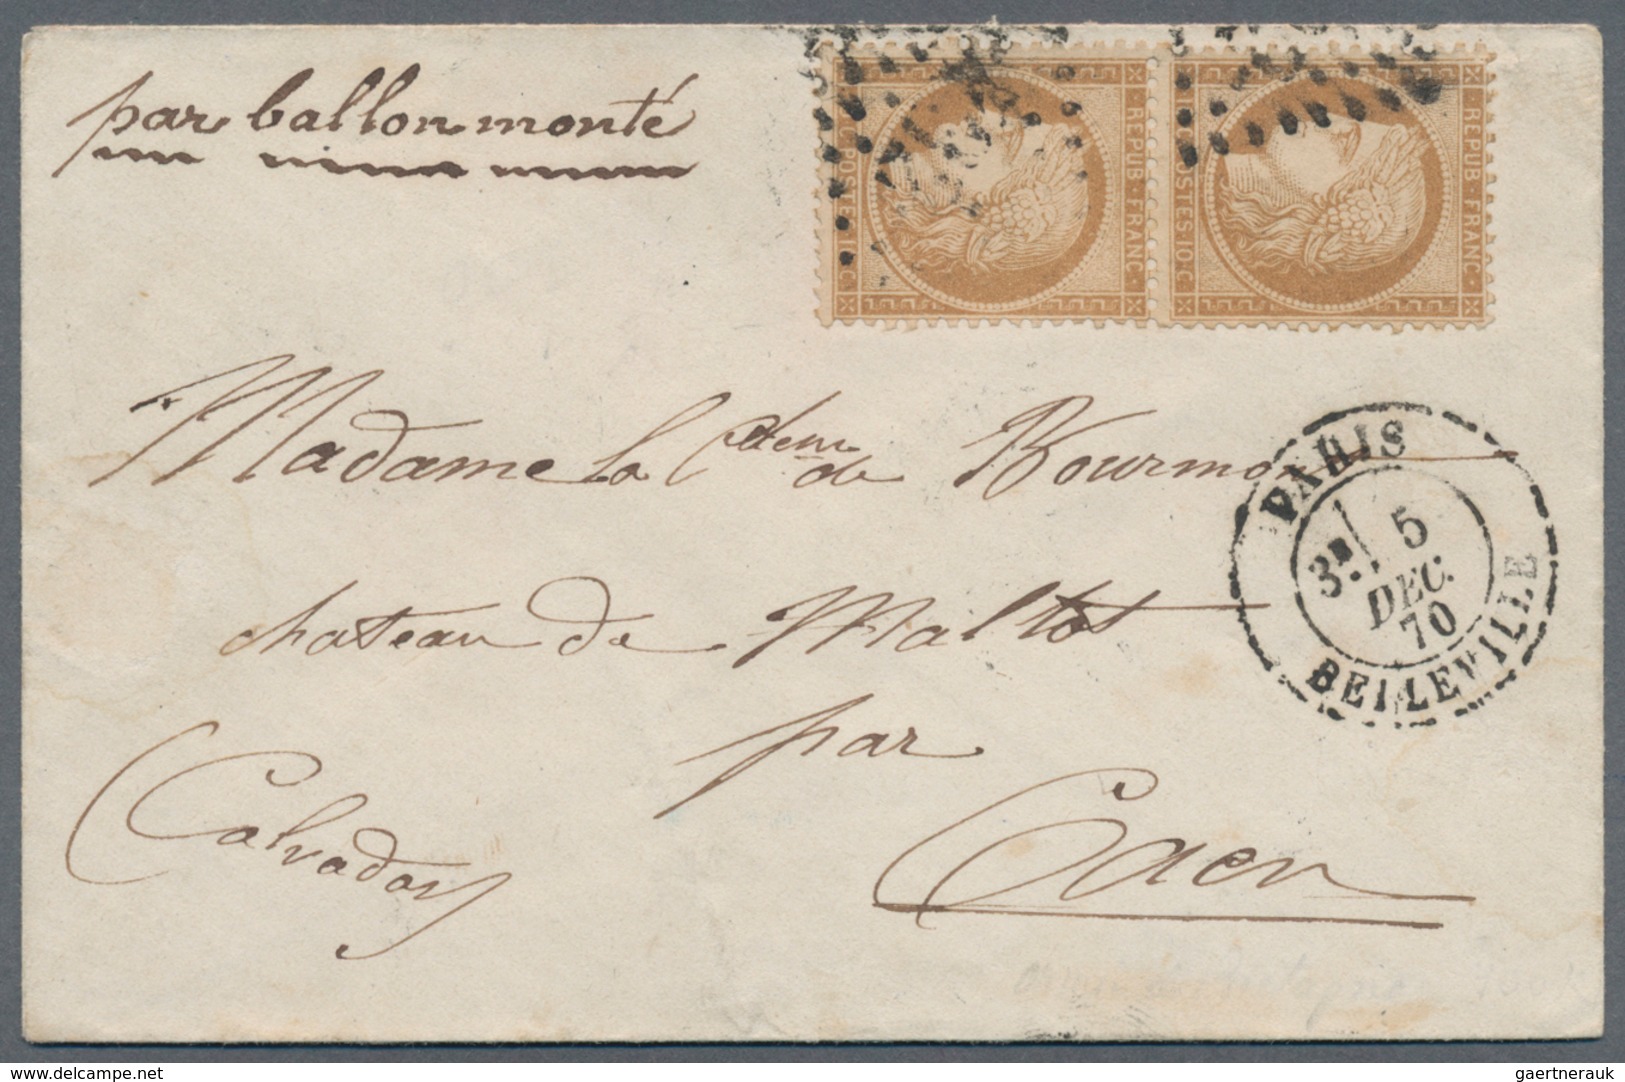 par ballon monté
REPUB · FRANC
POSTES 10 · C
REPUB · FRANC ·
POSTES · 10 · C ·
Madame la Ctesse de Bourmont
PARIS
3E
5
DEC.
70
BELLEVILLE
chateau de Maltot
par
Caen
Calvados
www.delcampe.net
gaertnerauk